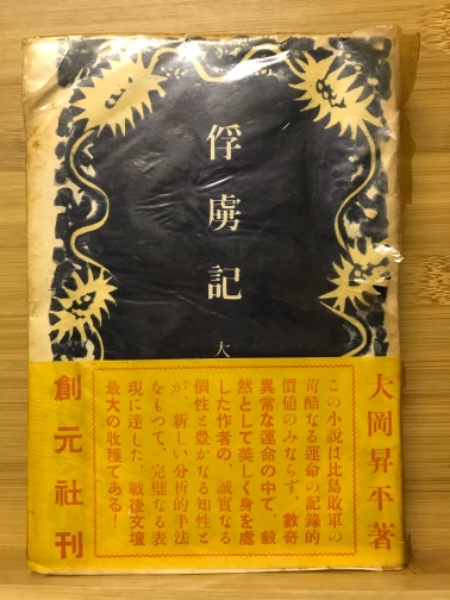 俘虜記
大
大岡昇平著
この小説は比島敗軍の
苛酷なる運命の記録的
價値のみならず、數奇
異常な運命の中で、毅
然として美しく身を處
した作者の、誠實なる
個性と豊かなる知性と
が、新しい分析的手法
をもつて、完璧なる表
現に達した、戰後文壇
最大の收穫である!
創元社刊